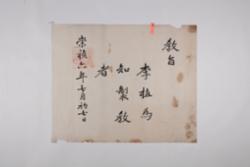 教旨
李植為
知製教
者
崇禎六年七月初七日